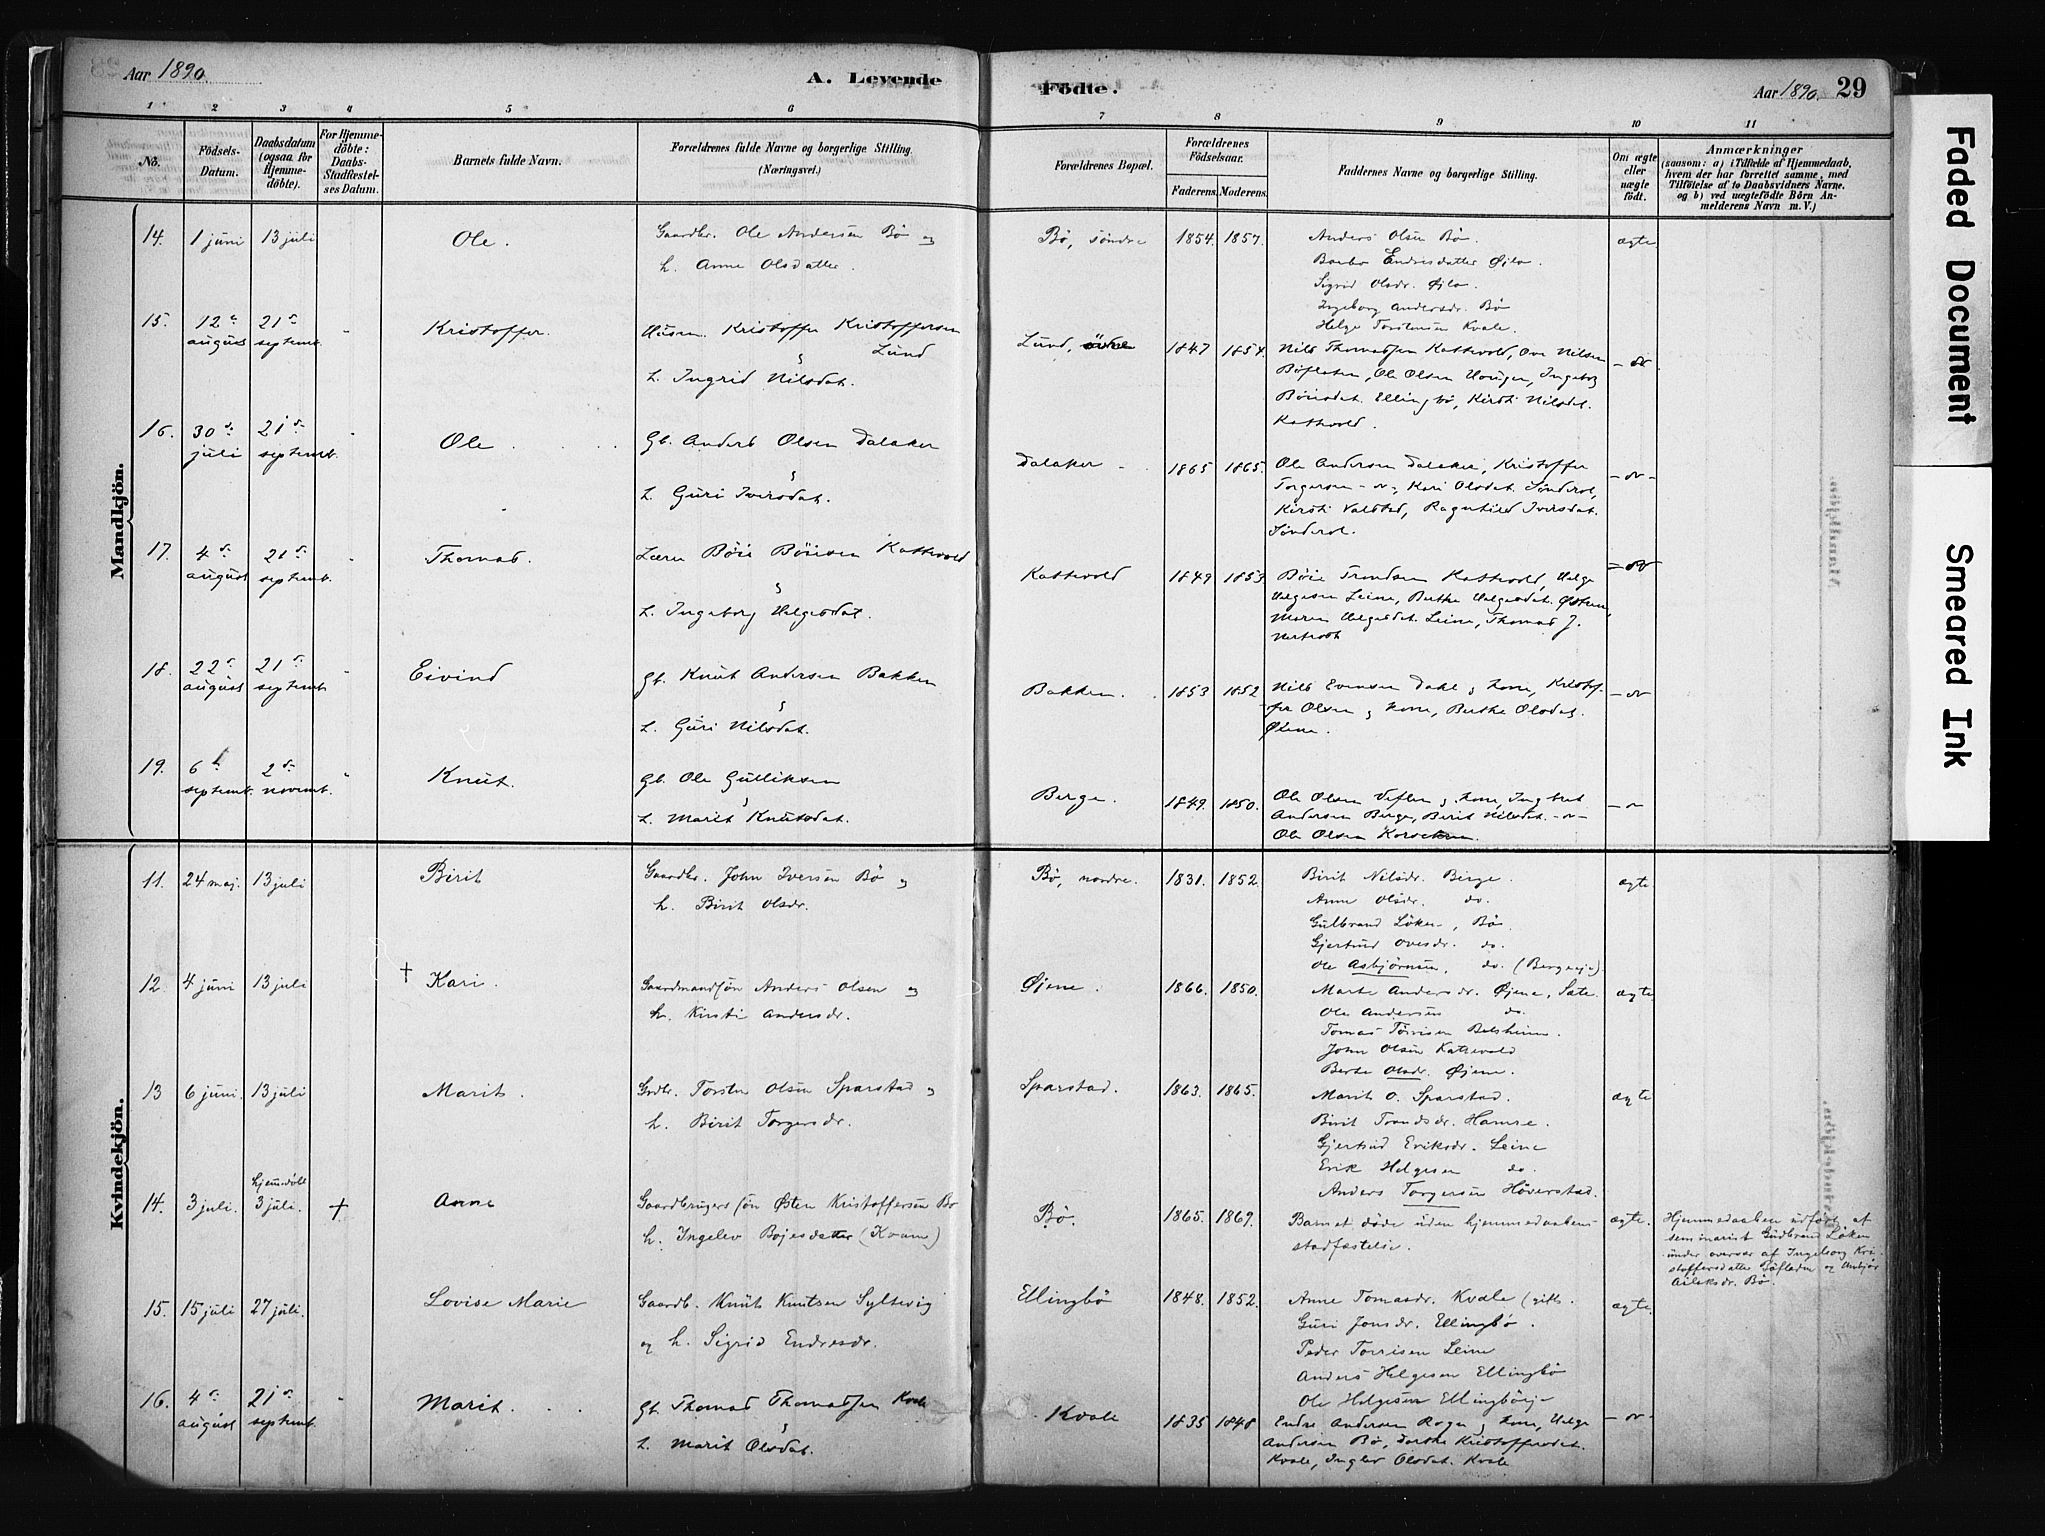 Aar 1890.
A. Levende
Födte.
Aar 1890. 29
1 2 3 4 5 6 7 8 9 10 11
No.
Födsels-Datum.
Daabsdatum (ogsaa for Hjemmedöbte).
For Hjemmedöbte: Daabs-Stadfæstelses Datum.
Barnets fulde Navn.
Forældrenes fulde Navne og borgerlige Stilling. (Næringsvei.)
Forældrenes Bopæl.
Forældrenes Födselsaar.
Faderens. Moderens.
Faddernes Navne og borgerlige Stilling.
Om ægte eller uægte födt.
Anmærkninger
(saasom: a) i Tilfælde af Hjemmedaab, hvem der har forrettet samme, med Tilföielse af to Daabsvidners Navne. og b) ved uægtefödte Börn Anmelderens Navn m. V.)
Mandkjön.
14. 1 juni 13 juli Ole. Gaardbr. Ole Andersen Bø og
h. Anne Olsdatter.
Bø, søndre 1854. 1857. Anders Olsen Bø. ægte
Barbo Endresdatter Øjlo.
Sigrid Olsdr. Øjlo.
Ingeborg Andersdr. Bø
Helge Torstensen Kvale.
15. 12te august 21de septemb. Kristoffer. Husm. Kristoffer Kristoffersen Lund
&
h. Ingrid Nilsdat.
Lund, 1847 1854. Nils Thomassen Kattevold, Ove Nilsen
Bøflaten, Ole Olsen Hougen, Ingeborg
Böiesdat. Ellingbø, Kirsti Nilsdat.
Kattevold.
16. 30de juli 21de septemb. Ole Gb. Anders Olsen Dalaker
&
h. Guri Iversdat.
Dalaker 1865 1865. Ole Andersen Dalaker, Kristoffer
Torgersen -"-, Kari Olsdat. Sönderol,
Kirsti Valstad, Ragnhild Iversdat.
Sönderol.
17. 4de august 21de septemb. Thomas. Lærer Böie Böiesen Kattevold
&
h. Ingeborg Helgesdat.
Kattevold 1849 1853 Böie Trondsen Kattevold, Helge
Helgesen Leine, Berthe Helgesdat. Østren,
Maren Helgesdat. Leine, Thomas J.
18. 22de august 21de septemb. Eivind Gb. Knut Andersen Bakken
&
h. Guri Nilsdat.
Bakken. 1853 1852 Nils Evensen Dahl & kone, Kristoffer
Olsen & kone, Berthe Olsdat.
Øiene.
19. 6te septemb. 2de novemb. Knut. Gb. Ole Gulliksen
&
h. Marit Knutsdat.
Berge. 1849. 1850. Ole Olsen & kone, Ingebret
Andersen Berge, Berit Nilsdat. -"-
Ole Olsen
Kvindekjön.
11. 24 maj. 13 juli Birit Gaardbr. John Iversen Bø og
h. Birit Olsdr.
Bø, nordre. 1831. 1852. Birit Nilsdr. Berge. ægte
Anne Olsdr. do.
Gulbrand Løken, Bø
Gjertrud Ovesdr. do.
Ole Asbjørnsen, do. (Bergseje).
12. 4 juni 13 juli † Kari. Gaardmandsøn Anders Olsen og
h. Kirsti Andersdr.
Øjene. 1866. 1850. Marte Andersdr. Øjene, Sæte. ægte
Ole Andersen do.
Tomas Tørrisen Belsheim.
John Olsen Kattevold
Berte Olsdr. Øjene.
13 6 juni. 13 juli Marit. Grdbr. Torsten Olsen Sparstad og
h. Birit Torgersdr.
Sparstad. 1863. 1865. Marit O. Sparstad. ægte
Birit Trondsdr. Hamre.
Gjertrud Eriksdr. Leine
Erik Helgesen do.
Anders Torgersen Høverstad.
14. 3 juli. hjemdöbt 3 juli. † Anne Gaardbrugersøn Østen Kristoffersen Bø
h. Ingelev Bøjesdatter (Kvam)
Bø. 1865. 1869. Barnet døde uden hjemmedaabens-
stadfæstelse.
ægte. Hjemmedaaben udført af
seminarist Gudbrand Løken
under overvær af Ingeborg Kri-
stoffersdatter Bøflaten og Anbjør
Aslaksdr. Bø.
15. 15 juli 27 juli. Lovise Marie Gaardb. Knut Knutsen Syltevig
og h. Sigrid Endresdr.
Ellingbø 1848. 1852. Anne Tomasdr. Kvale (gift. ægte.
Guri Jonsdr. Ellingbø.
Peder Torrisen Leine
Anders Helgesen Ellingbø
Ole Helgesen Ellingbøej-
16. 4de august 21de septemb. Marit. Gb. Thomas Thomassen Kvale
&
h. Marit Olsdat.
Kvale 1835 1848 Endre Andersen Rogn & kone, Helge
Andersen Bø, Dorthe Kristoffersdat.
Kvale, Ingler Olsdat. Kvale
Faded Document
Smeared Ink